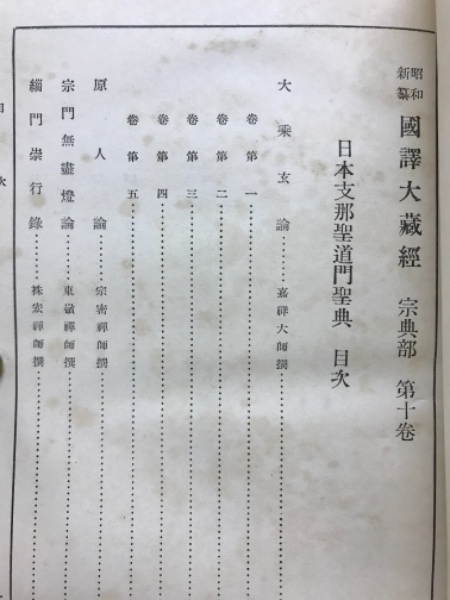 昭和新纂 國譯大藏經 宗典部 第十卷
日本支那聖道門聖典 目次
大乘玄論……嘉祥大師撰
卷第一
卷第二
卷第三
卷第四
卷第五
原人論……宗密禪師撰
宗門無盡燈論……東嶺禪師撰
緇門崇行錄……袾宏禪師撰
目次